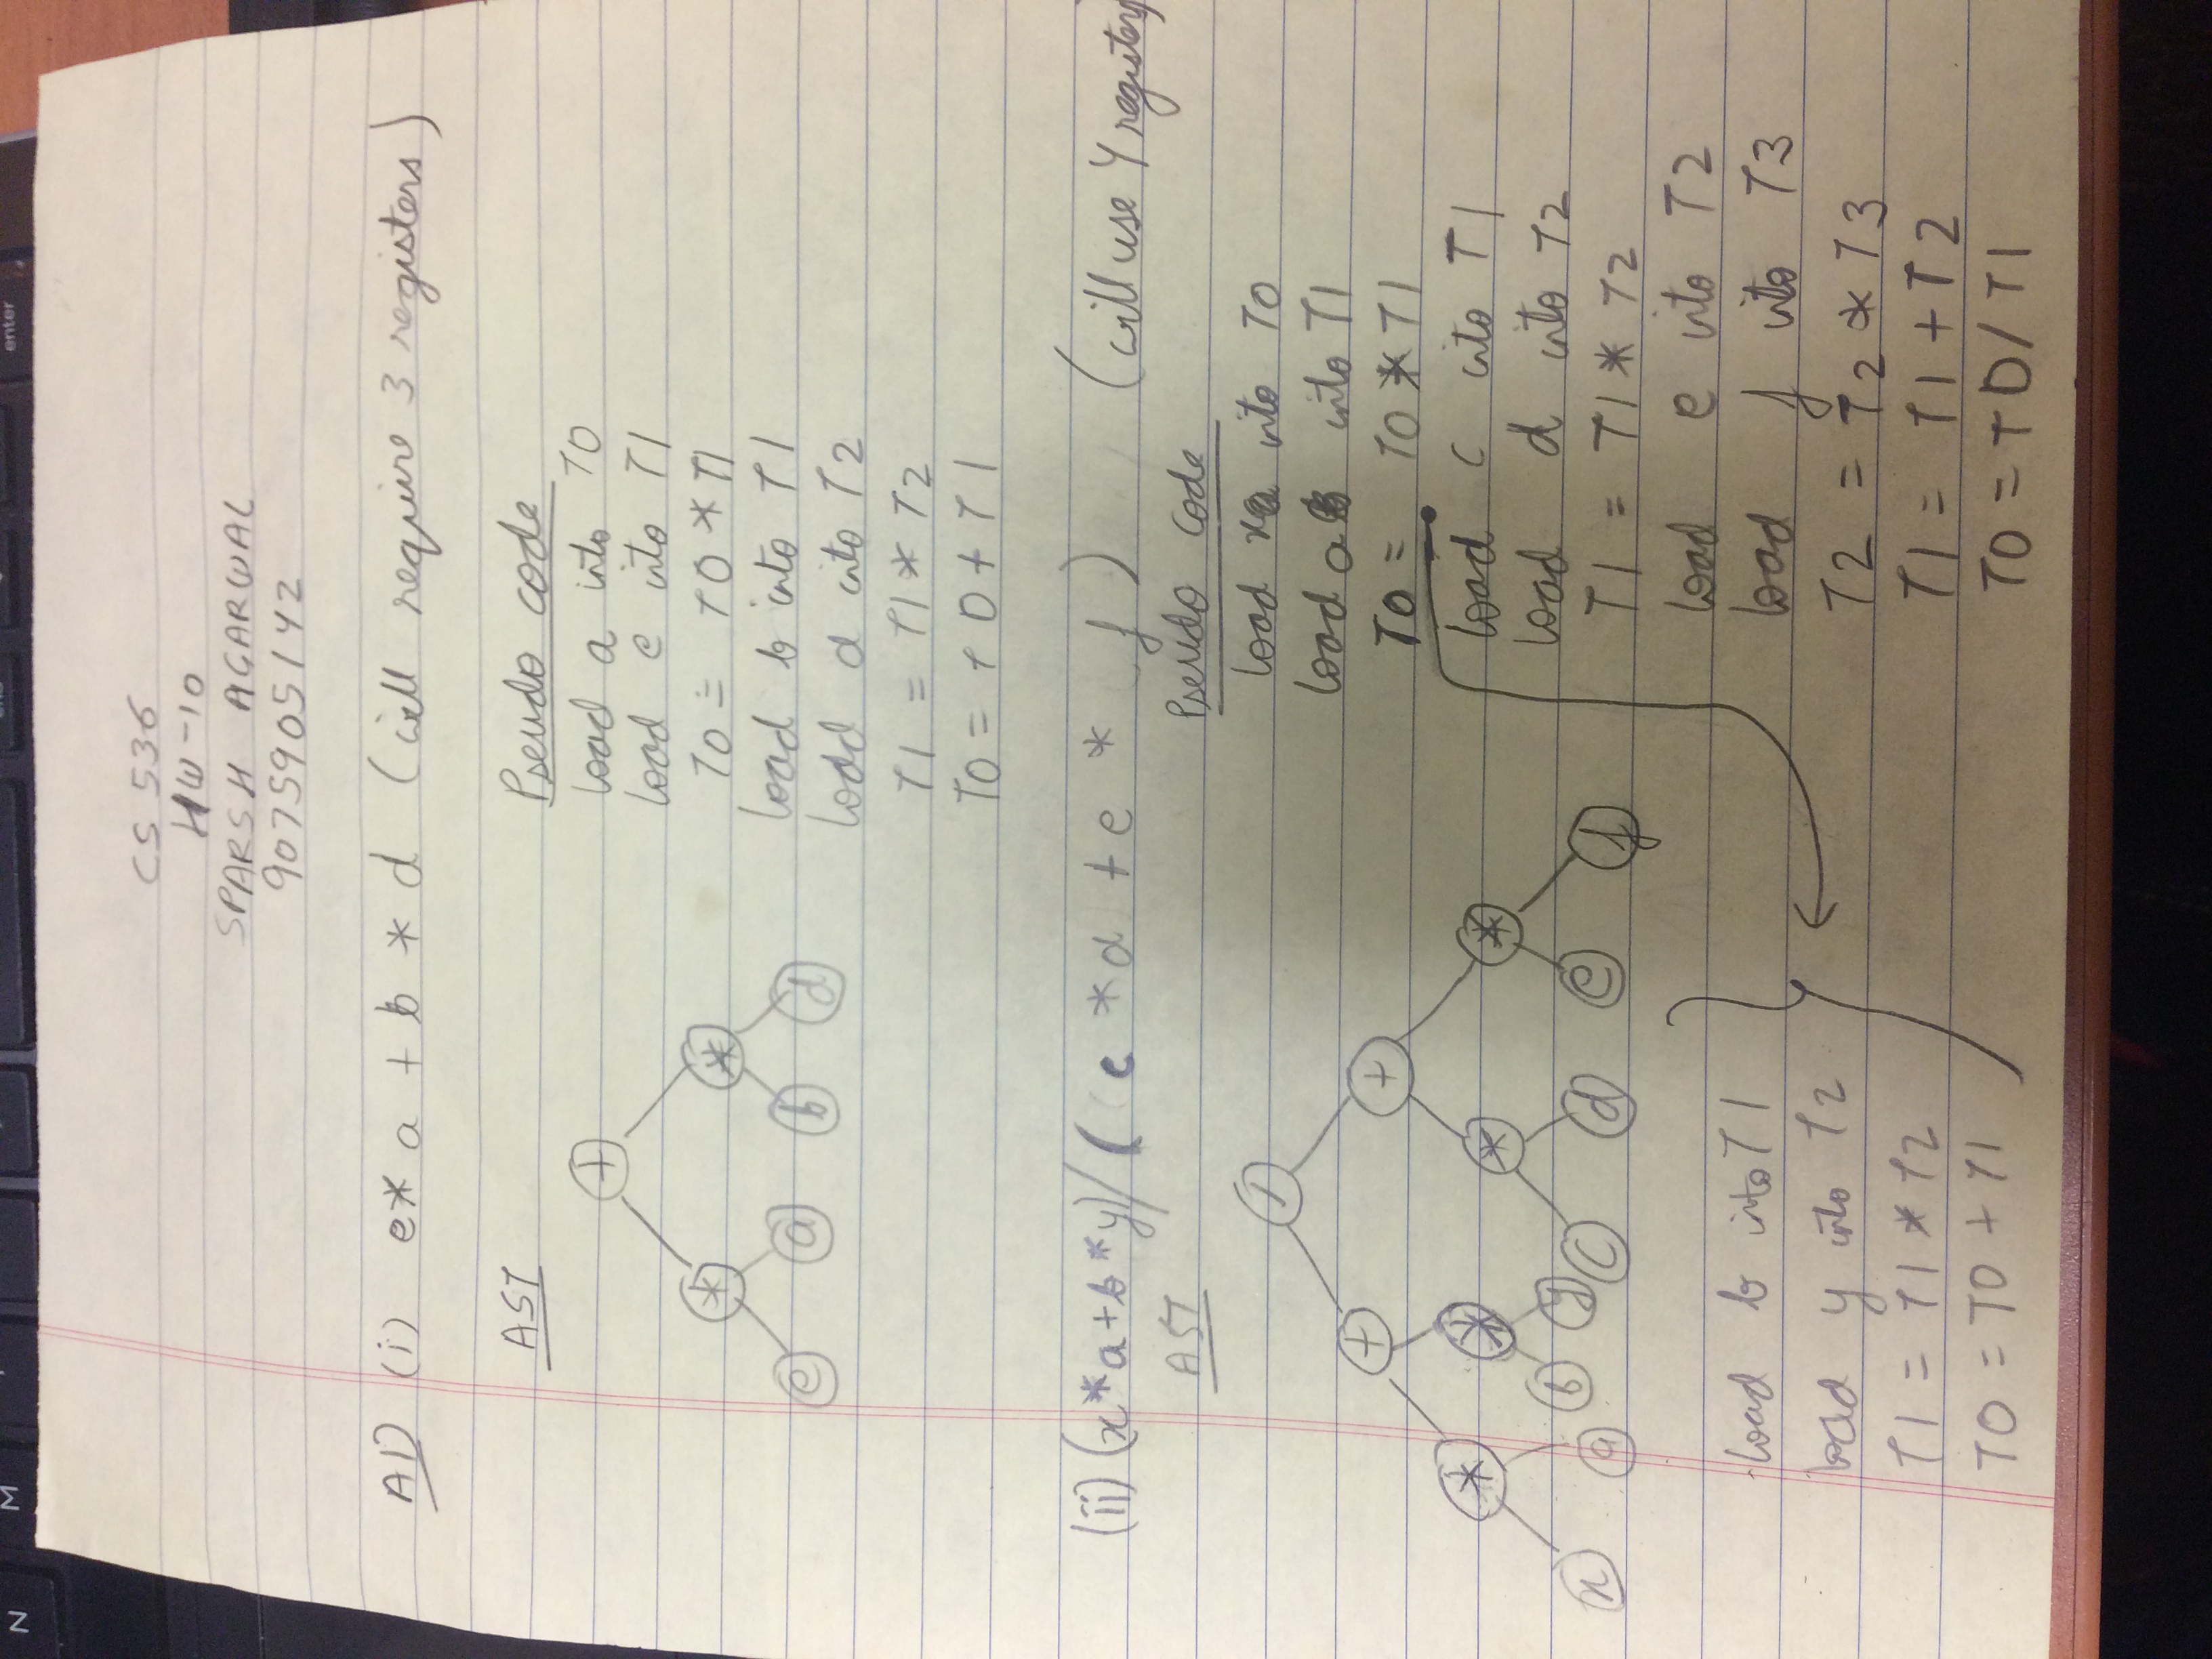 N
M
enter
CS 536
HW-10
SPARSH AGARWAL
9075905142
A1) (i) e* a + b * d (will require 3 registers)
AST
+
* *
e a b d
Pseudo code
load a into T0
load e into T1
T0 = T0 * T1
load b into T1
load d into T2
T1 = T1 * T2
T0 = T0 + T1
(ii) (x*a+b*y)/( c *d + e * f ) (will use 4 registers)
AST
/
+ +
* * * *
x a b y c d e f
Pseudo code
load x into T0
load a into T1
T0 = T0 * T1
load b into T1
load y into T2
T1 = T1 * T2
T0 = T0 + T1
load c into T1
load d into T2
T1 = T1 * T2
load e into T2
load f into T3
T2 = T2 * T3
T1 = T1 + T2
T0 = T0 / T1